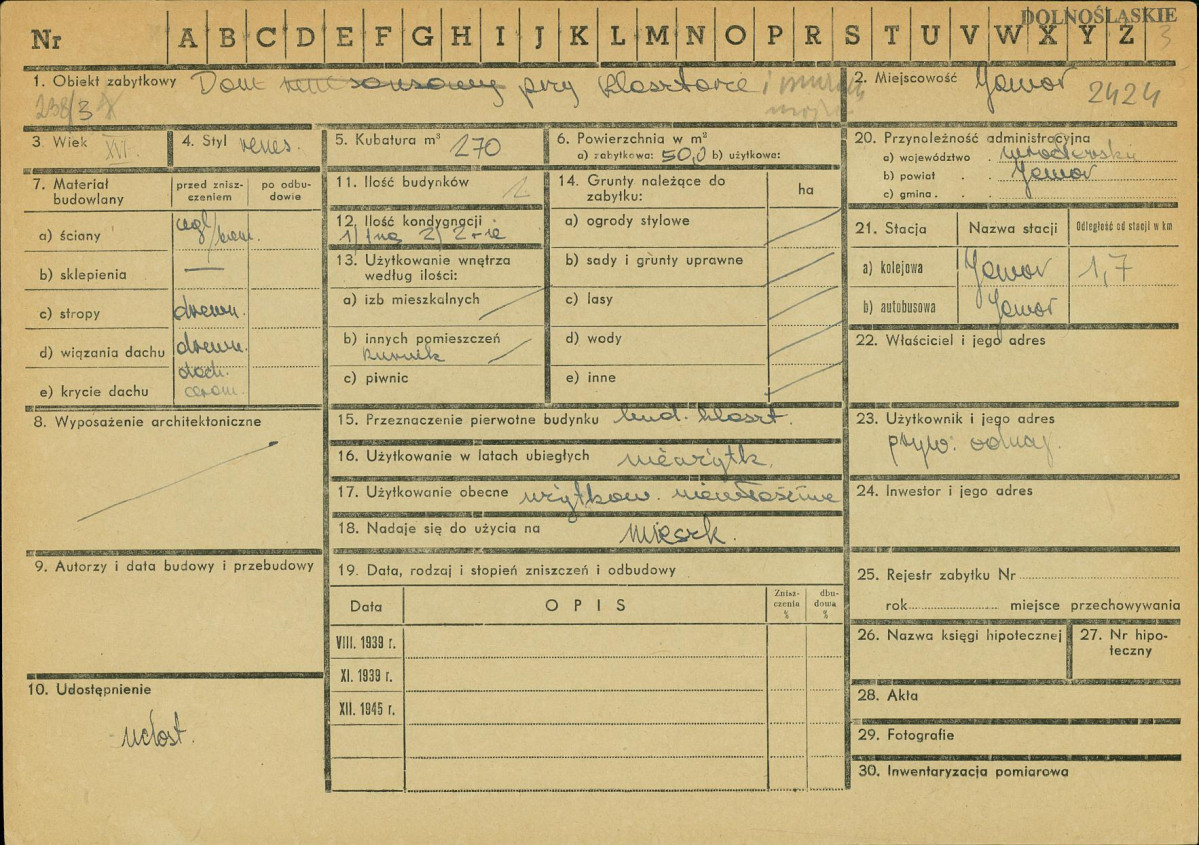 DOLNOŚLĄSKIE
Nr A B C D E F G H I J K L M N O P R S T U V W X Y Z 3
1. Obiekt zabytkowy Dom przy klasztorze i
238/3
2. Miejscowość Jawor 2424
3. Wiek XVI
4. Styl renes.
5. Kubatura m³ 270
6. Powierzchnia w m²
a) zabytkowa: 50,0 b) użytkowa:
7. Materiał budowlany
przed znisz-
czeniem
po odbu-
dowie
a) ściany cegl/kam.
b) sklepienia —
c) stropy drewn.
d) wiązania dachu drewn.
e) krycie dachu dach. ceram.
8. Wyposażenie architektoniczne
9. Autorzy i data budowy i przebudowy
10. Udostępnienie
udost.
11. Ilość budynków 2
12. Ilość kondygnacji
13. Użytkowanie wnętrza
według ilości:
a) izb mieszkalnych
b) innych pomieszczeń
kurnik
c) piwnic
14. Grunty należące do
zabytku:
ha
a) ogrody stylowe
b) sady i grunty uprawne
c) lasy
d) wody
e) inne
15. Przeznaczenie pierwotne budynku bud. klaszt.
16. Użytkowanie w latach ubiegłych nieużytk.
17. Użytkowanie obecne użytkow. niewłaściwe
18. Nadaje się do użycia na mieszk.
19. Data, rodzaj i stopień zniszczeń i odbudowy
Data
OPIS
Znisz-
czenia
%
dbu-
dowa
%
VIII. 1939 r.
XI. 1939 r.
XII. 1945 r.
20. Przynoleżność administracyjna
a) województwo . wrocławskie
b) powiat . . Jawor
c) gmina . .
21. Stacja
Nazwa stacji
Odległość od stacji w km
a) kolejowa Jawor 1,7
b) autobusowa Jawor
22. Właściciel i jego adres
23. Użytkownik i jego adres
pryw.
24. Inwestor i jego adres
25. Rejestr zabytku Nr
rok miejsce przechowywania
26. Nazwa księgi hipotecznej
27. Nr hipo-
teczny
28. Akta
29. Fotografie
30. Inwentaryzacja pomiarowa